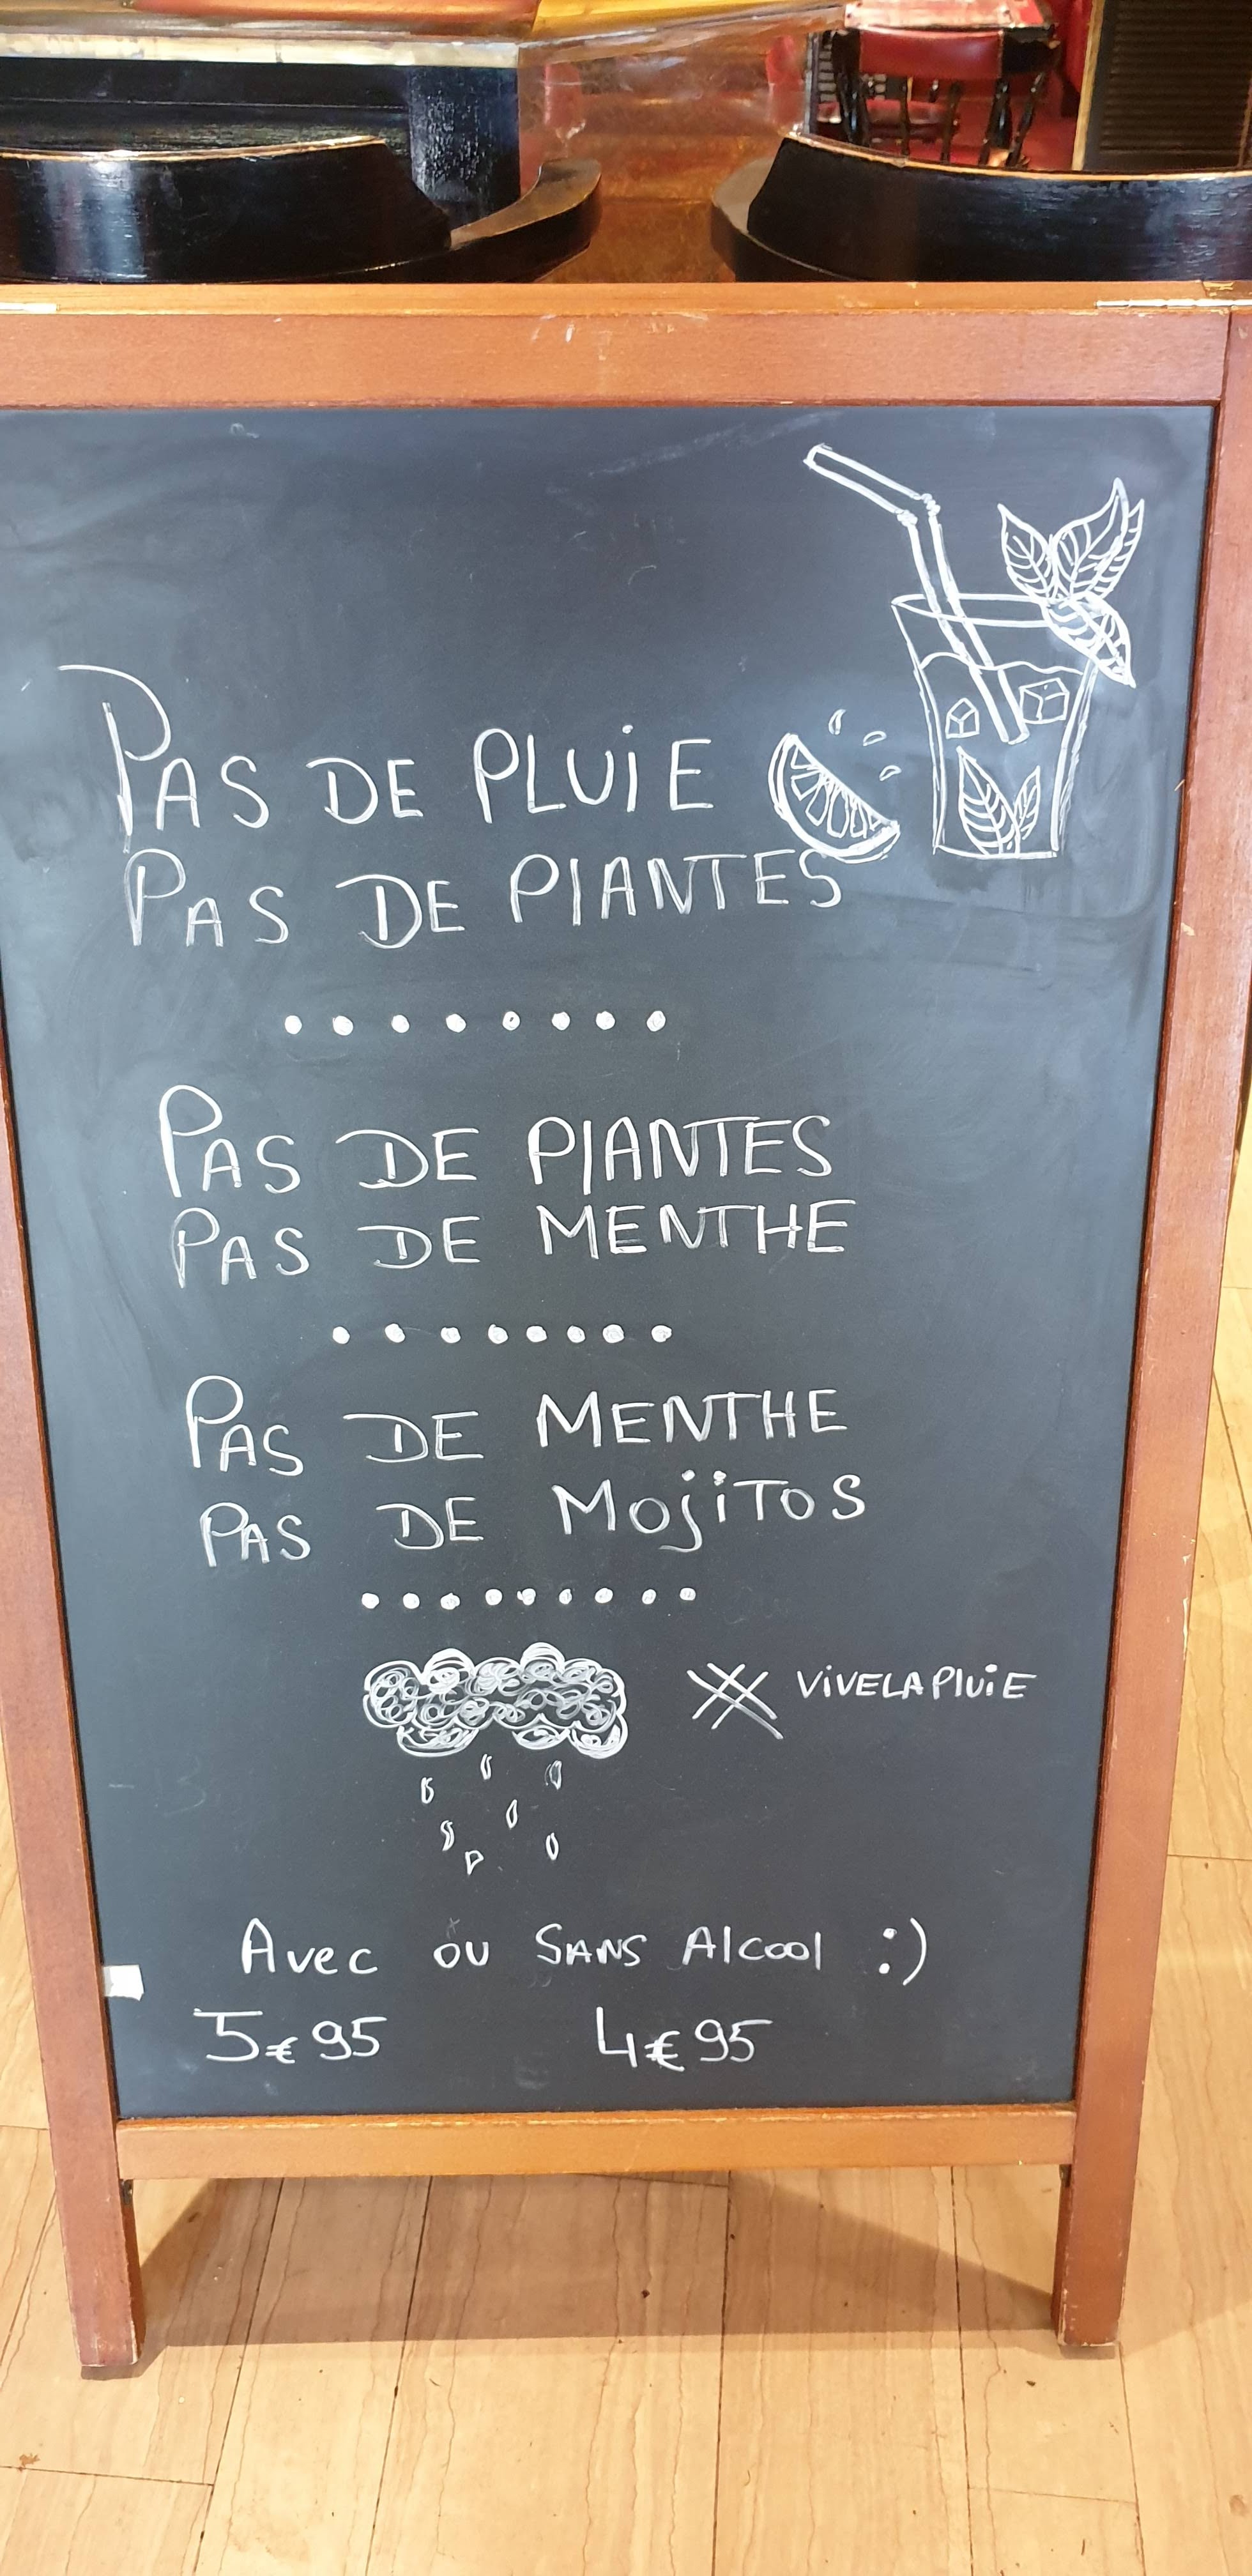 PAS DE PLUiE
PAS DE PlANTES
PAS DE PlANTES
PAS DE MENTHE
PAS DE MENTHE
PAS DE MojiTOS
# ViVELAPluiE
Avec ou SANS Alcool :)
5€95 4€95